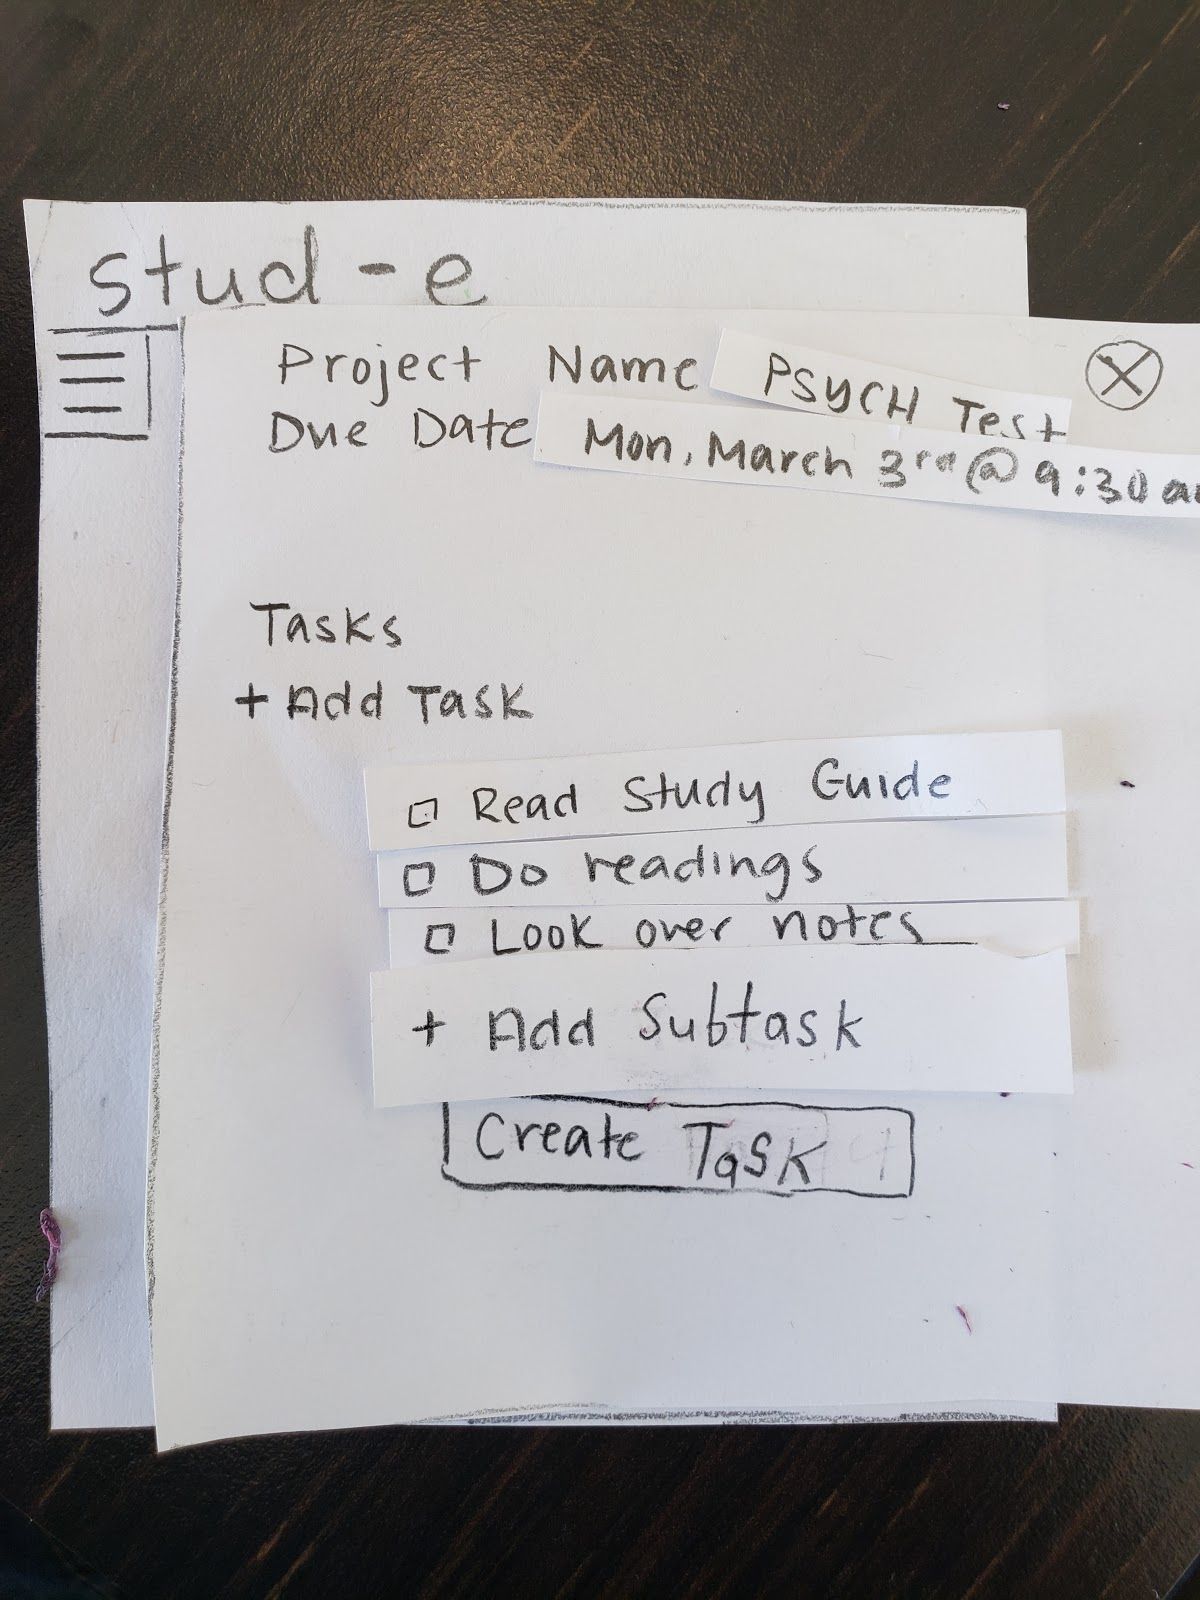 stud-e
Project Name PSYCH Test
Due Date Mon, March 3rd @ 9:30 a
Tasks
+ Add Task
Read Study Guide
Do readings
Look over notes
+ Add Subtask
Create Task